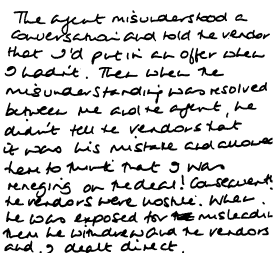 The agent misunderstood a
conversation and told the vendor
that I'd put in an offer when
I hadn't. Then when the
misunderstanding was resolved
between me and the agent, he
didn't tell the vendors that
it was his mistake and allowed
them to think that I was
reneging on the deal! Consequently
the vendors were hostile. When
he was exposed for misleading
them he withdrew and the vendors
and I dealt direct.